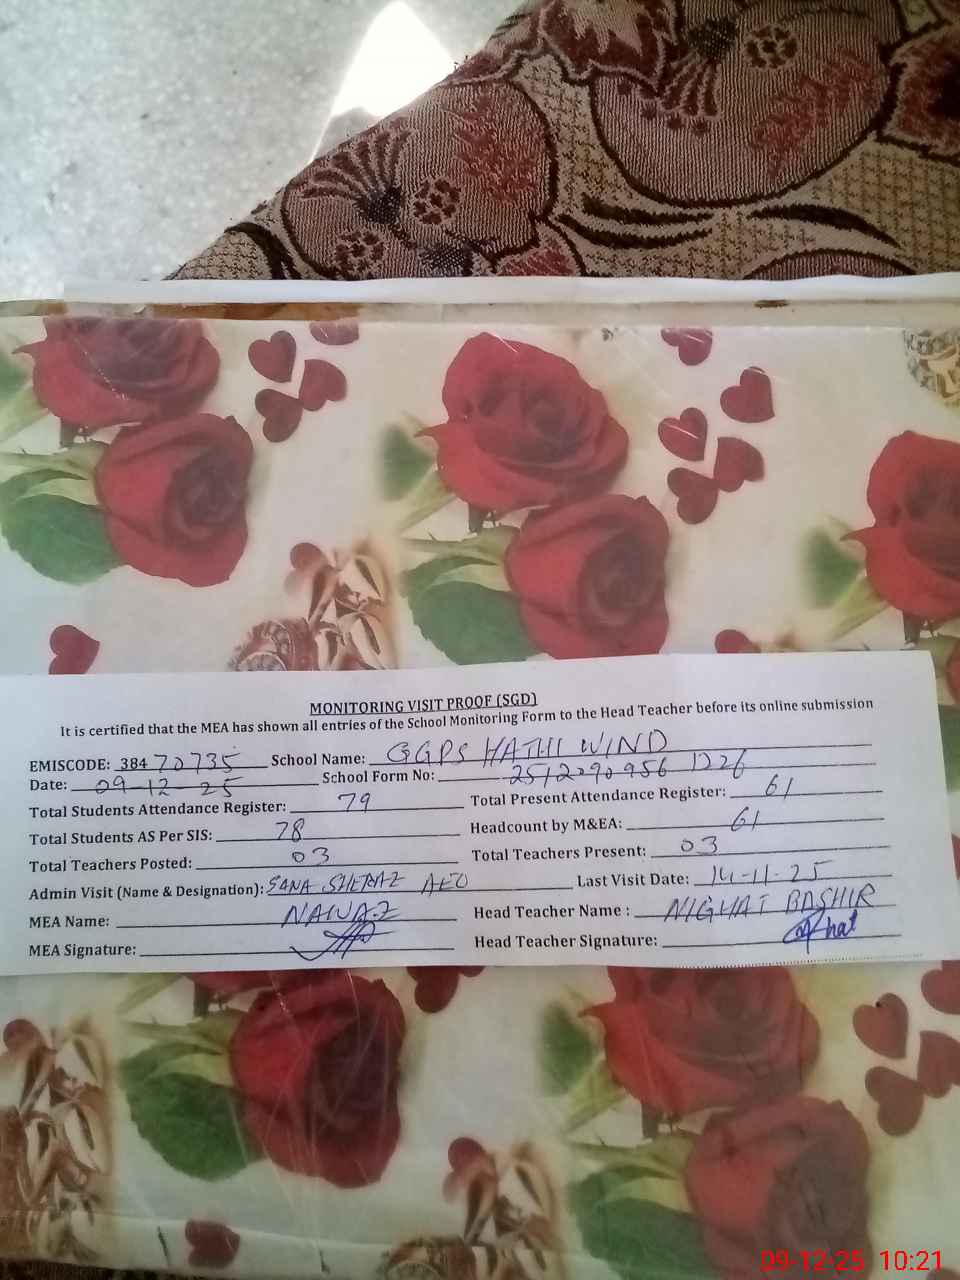 MONITORING VISIT PROOF (SGD)
It is certified that the MEA has shown all entries of the School Monitoring Form to the Head Teacher before its online submission
EMISCODE: 384 70735 School Name: GGPS HATHI WIND
Date: 09-12-25 School Form No: 2512090956 1226
Total Students Attendance Register: 79 Total Present Attendance Register: 61
Total Students AS Per SIS: 78 Headcount by M&EA: 61
Total Teachers Posted: 03 Total Teachers Present: 03
Admin Visit (Name & Designation): SANA SHERAZ AEO Last Visit Date: 14-11-25
MEA Name: NAWAZ Head Teacher Name : NIGHAT BASHIR
MEA Signature: Head Teacher Signature:
09-12-25 10:21